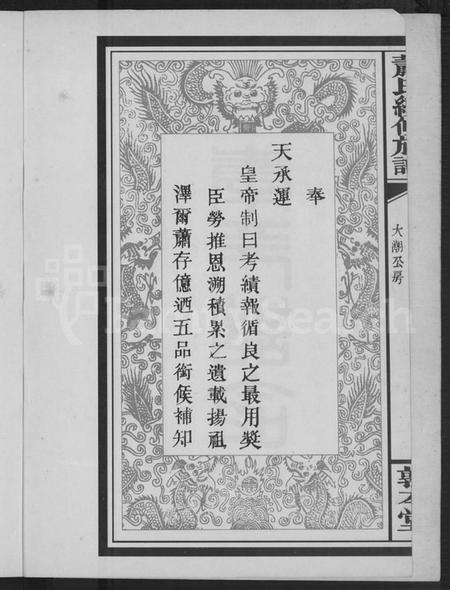 奉
天承運
皇帝制曰考績報循良之最用奬
臣勞推恩溯積累之遺載揚祖
澤爾蕭存億迺五品銜候補知
蕭氏續修族譜
大潮公房
敦本堂
FamilySearch